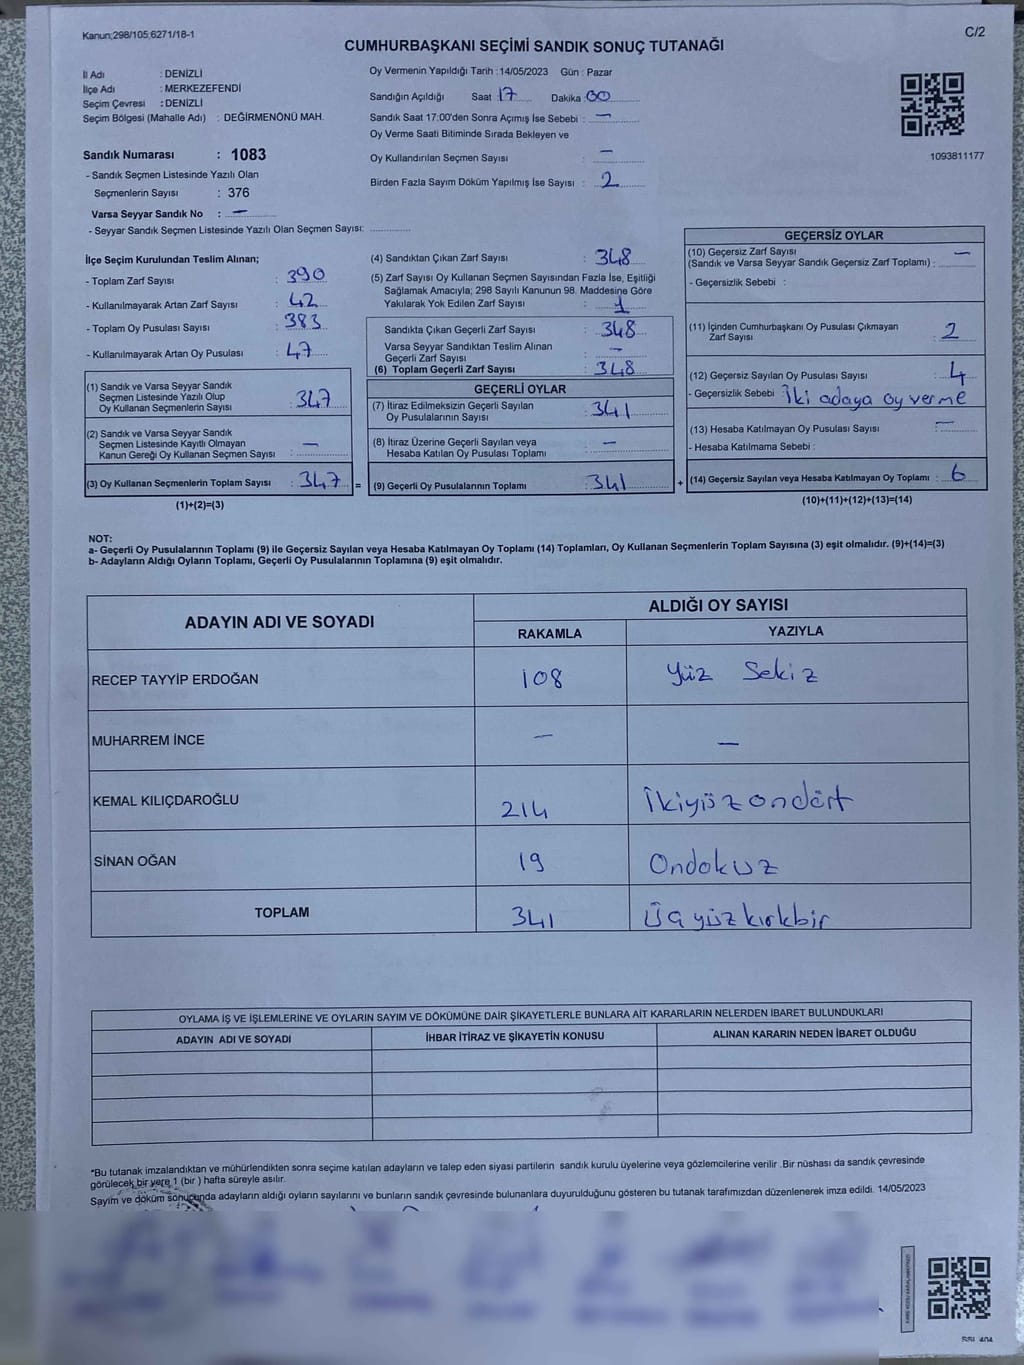 Kanun;298/105;6271/18-1
C/2
CUMHURBAŞKANI SEÇİMİ SANDIK SONUÇ TUTANAĞI
İl Adı : DENİZLİ
İlçe Adı : MERKEZEFENDİ
Seçim Çevresi : DENİZLİ
Seçim Bölgesi (Mahalle Adı) : DEĞİRMENÖNÜ MAH.
Sandık Numarası : 1083
- Sandık Seçmen Listesinde Yazılı Olan
Seçmenlerin Sayısı : 376
Varsa Seyyar Sandık No : —
- Seyyar Sandık Seçmen Listesinde Yazılı Olan Seçmen Sayısı:
Oy Vermenin Yapıldığı Tarih : 14/05/2023 Gün : Pazar
Sandığın Açıldığı Saat 17 Dakika 00
Sandık Saat 17:00'den Sonra Açımış İse Sebebi : —
Oy Verme Saati Bitiminde Sırada Bekleyen ve
Oy Kullandırılan Seçmen Sayısı : —
Birden Fazla Sayım Döküm Yapılmış İse Sayısı : 2
1093811177
İlçe Seçim Kurulundan Teslim Alınan;
- Toplam Zarf Sayısı : 390
- Kullanılmayarak Artan Zarf Sayısı : 42
- Toplam Oy Pusulası Sayısı : 383
- Kullanılmayarak Artan Oy Pusulası : 47
(1) Sandık ve Varsa Seyyar Sandık
Seçmen Listesinde Yazılı Olup
Oy Kullanan Seçmenlerin Sayısı : 347
(2) Sandık ve Varsa Seyyar Sandık
Seçmen Listesinde Kayıtlı Olmayan
Kanun Gereği Oy Kullanan Seçmen Sayısı : —
(3) Oy Kullanan Seçmenlerin Toplam Sayısı : 347 =
(1)+(2)=(3)
(4) Sandıktan Çıkan Zarf Sayısı : 348
(5) Zarf Sayısı Oy Kullanan Seçmen Sayısından Fazla İse, Eşitliği
Sağlamak Amacıyla; 298 Sayılı Kanunun 98. Maddesine Göre
Yakılarak Yok Edilen Zarf Sayısı : 1
Sandıkta Çıkan Geçerli Zarf Sayısı : 348
Varsa Seyyar Sandıktan Teslim Alınan
Geçerli Zarf Sayısı : —
(6) Toplam Geçerli Zarf Sayısı : 348
GEÇERLİ OYLAR
(7) İtiraz Edilmeksizin Geçerli Sayılan
Oy Pusulalarının Sayısı : 341
(8) İtiraz Üzerine Geçerli Sayılan veya
Hesaba Katılan Oy Pusulası Toplamı : —
(9) Geçerli Oy Pusulalarının Toplamı : 341 +
GEÇERSİZ OYLAR
(10) Geçersiz Zarf Sayısı
(Sandık ve Varsa Seyyar Sandık Geçersiz Zarf Toplamı) : —
- Geçersizlik Sebebi :
(11) İçinden Cumhurbaşkanı Oy Pusulası Çıkmayan
Zarf Sayısı : 2
(12) Geçersiz Sayılan Oy Pusulası Sayısı : 4
- Geçersizlik Sebebi İki adaya oy verme
(13) Hesaba Katılmayan Oy Pusulası Sayısı : —
- Hesaba Katılmama Sebebi :
(14) Geçersiz Sayılan veya Hesaba Katılmayan Oy Toplamı : 6
(10)+(11)+(12)+(13)=(14)
NOT:
a- Geçerli Oy Pusulalarının Toplamı (9) ile Geçersiz Sayılan veya Hesaba Katılmayan Oy Toplamı (14) Toplamları, Oy Kullanan Seçmenlerin Toplam Sayısına (3) eşit olmalıdır. (9)+(14)=(3)
b- Adayların Aldığı Oyların Toplamı, Geçerli Oy Pusulalarının Toplamına (9) eşit olmalıdır.
ADAYIN ADI VE SOYADI
ALDIĞI OY SAYISI
RAKAMLA YAZIYLA
RECEP TAYYİP ERDOĞAN 108 Yüz Sekiz
MUHARREM İNCE — —
KEMAL KILIÇDAROĞLU 214 İkiyüzondört
SİNAN OĞAN 19 Ondokuz
TOPLAM 341 Üçyüzkırkbir
OYLAMA İŞ VE İŞLEMLERİNE VE OYLARIN SAYIM VE DÖKÜMÜNE DAİR ŞİKAYETLERLE BUNLARA AİT KARARLARIN NELERDEN İBARET BULUNDUKLARI
ADAYIN ADI VE SOYADI İHBAR İTİRAZ VE ŞİKAYETİN KONUSU ALINAN KARARIN NEDEN İBARET OLDUĞU
*Bu tutanak imzalandıktan ve mühürlendikten sonra seçime katılan adayların ve talep eden siyasi partilerin sandık kurulu üyelerine veya gözlemcilerine verilir .Bir nüshası da sandık çevresinde
görülecek bir yere 1 (bir ) hafta süreyle asılır.
Sayım ve döküm sonucunda adayların aldığı oyların sayılarını ve bunların sandık çevresinde bulunanlara duyurulduğunu gösteren bu tutanak tarafımızdan düzenlenerek imza edildi. 14/05/2023